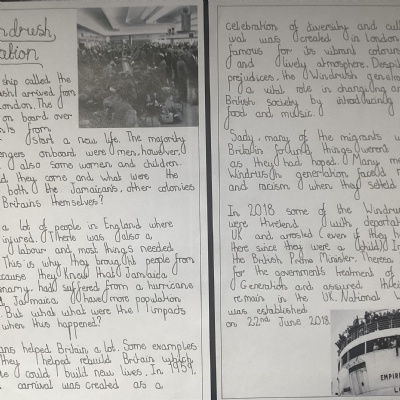 ndrush,
ation
ship called the
ush) arrived from
London. The
on board over
ts from
start a new life. The majority
engers onboard were men, however,
also some women and children.
d they come and what were the
both the Jamaicans, other colonies
Britains themselves?
a lot of people in England where
injured. There was also a
labour and most things needed
This is why they brought people from
ecause they knew that Jamaica
onomy, had suffered from a hurricane
d Jamaica have more population
But what what were the impacts
when this happened?
ans helped Britain a lot. Some examples
they helped rebuild Britain which
could build new lives. In 1959,
carnival was created as a
celebration of diversity and cult
val was created in London
famous for its vibrant colours
and lively atmosphere. Despit
prejudices, the Windrush generati
a vital role in changing an
British society by introducing
food and music.
Sady, many of the migrants w
Britain found things weren't
as they had hoped. Many me
Windrush generation faced r
and racism when they settled
In 2018 some of the Windrus
were threatened with deportat
UK and arrested (even if they h
there since they were a child). In
the British Prime Minister, Theresa
for the government's treatment of
Generation and assured the
remain in the UK. National W
was established
on 22nd June 2018.
EMPIR
LO